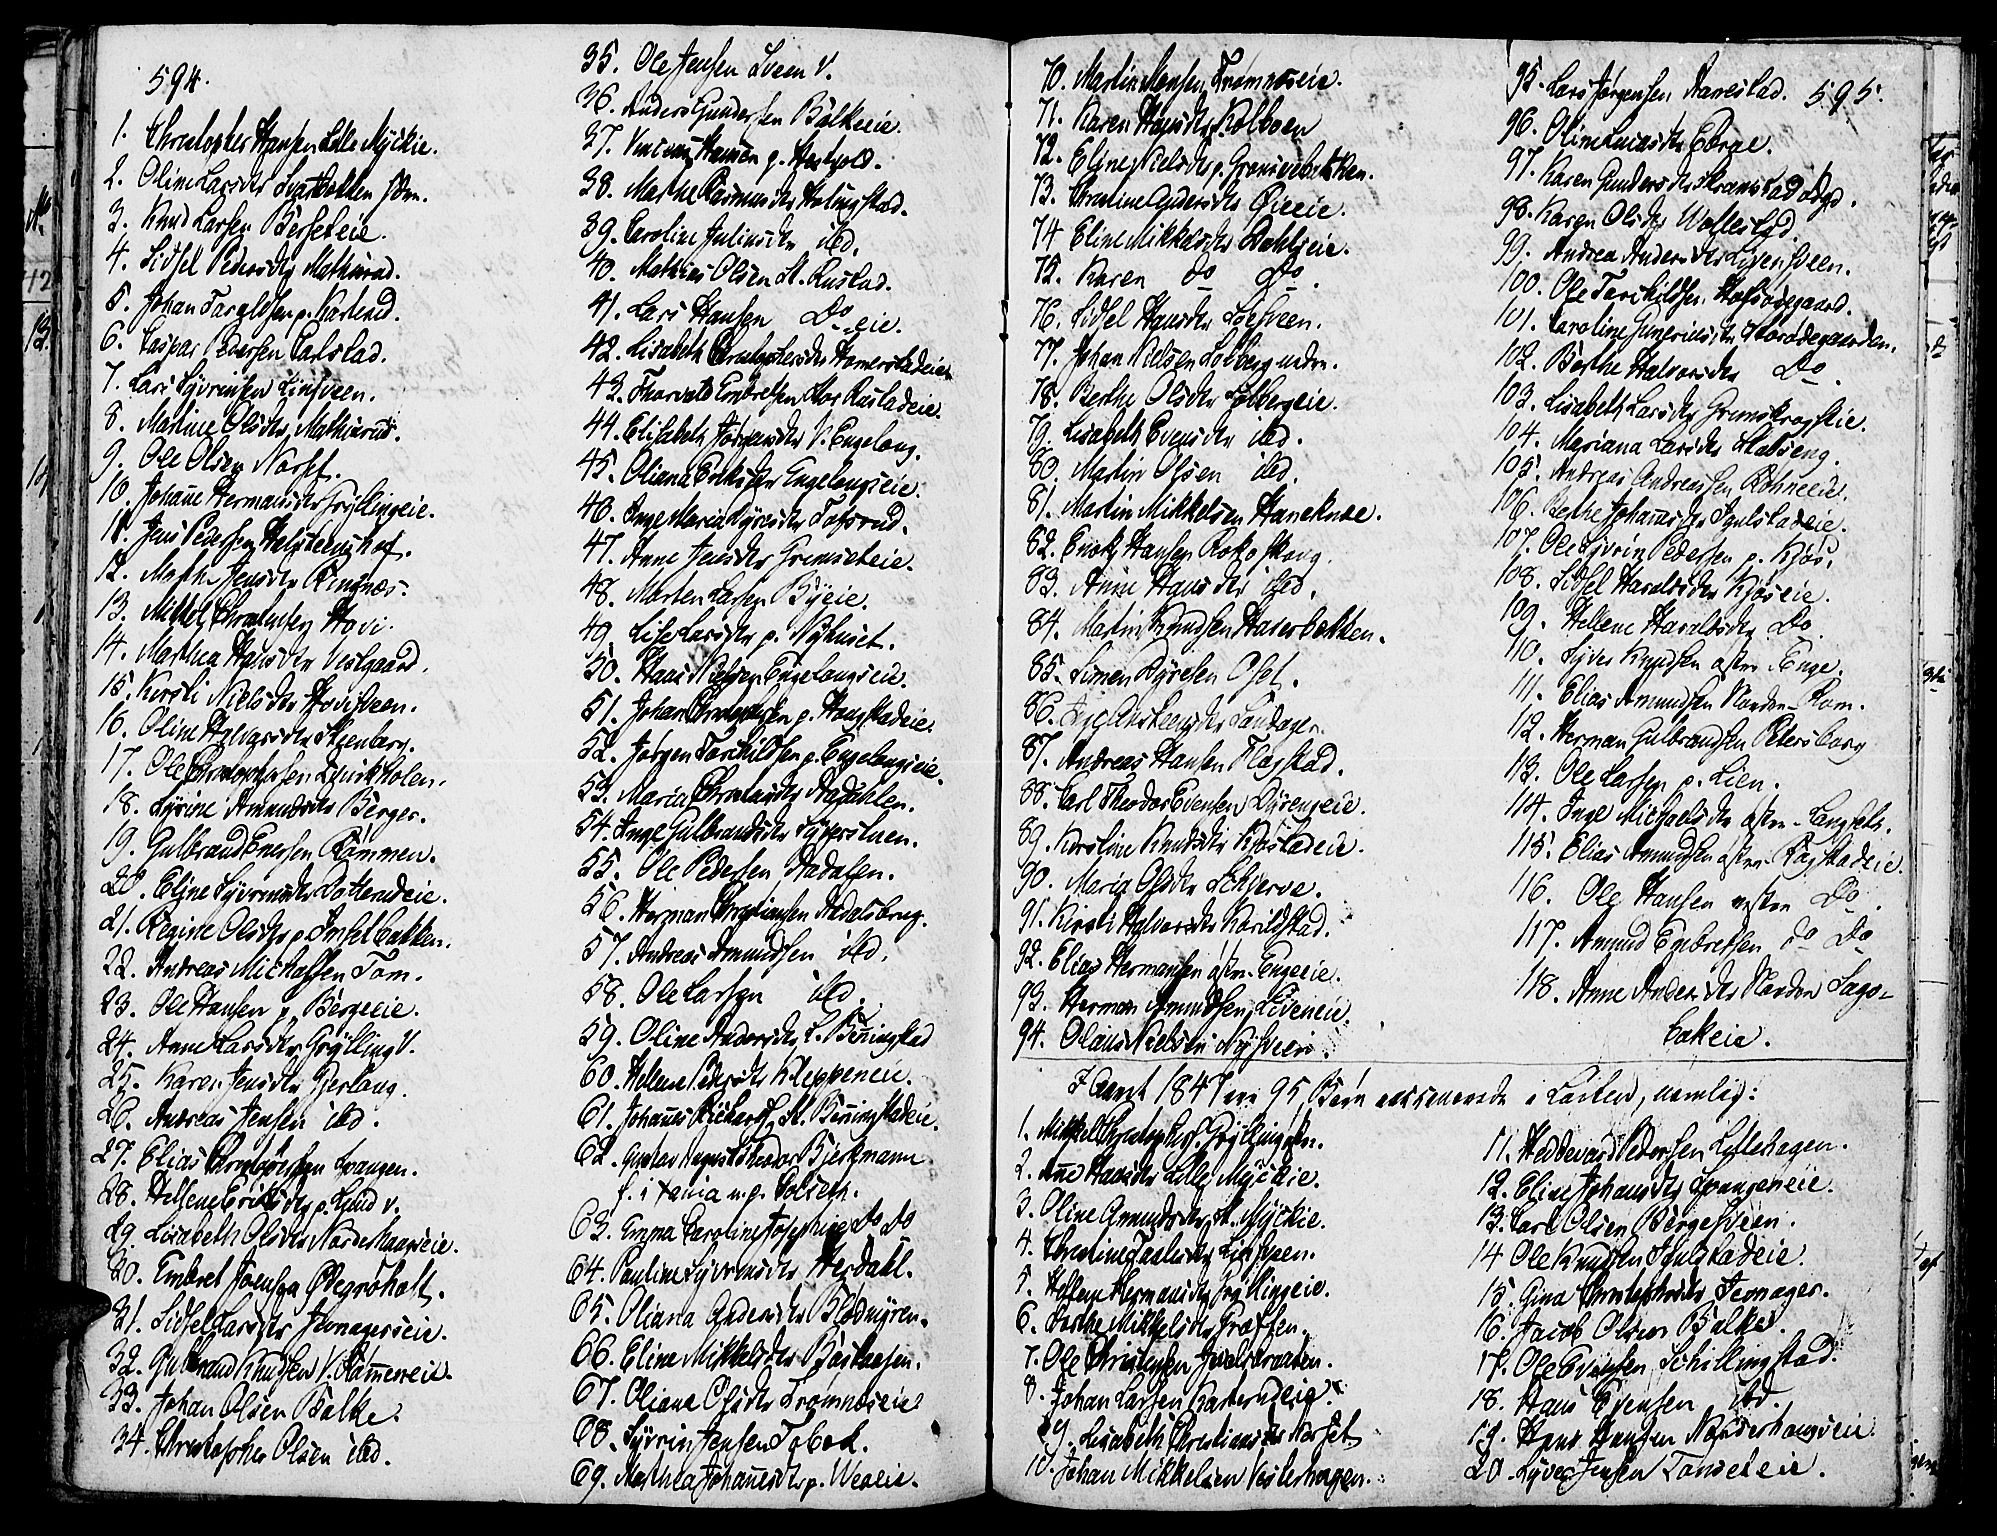 594.
1. Christopher Hansen Lille Myckie.
2. Oline Larsdtr Svartbakken
3. Knud Larsen Berseteie.
4. Sidsel Pedersdtr Mathisrud.
5. Johan Taraldsen p. Karterud.
6. Caspar Pedersen Carlstad.
7. Lars Syvrinsen Lindsveen.
8. Martine Olsdtr Mathisrud.
9. Ole Olsen Norset.
10. Johañe Hermansdtr Gryllingeie.
11. Jens Pedersen Helsteenshof.
12. Marthe Jensdtr Ringnæs.
13. Mikkel Christensen Hovi.
14. Marthea Hansdtr Vestgaard.
15. Kersti Nielsdtr Hovisveen.
16. Oline Halvorsdtr Steenberg.
17. Ole Christophersen Qvisktolen.
18. Syrine Amundsdtr Berger.
19. Gulbrand Enersen Rommen.
20. Eline Syvrinsdtr Dotterudeie.
21. Regine Olsdtr p. Imselbakken.
22. Andreas Michelsen Tom.
23. Ole Hansen p. Bergeeie.
24. Anne Larsdtr Grylling V.
25. Karen Jensdtr Gjerlaug.
26. Andreas Jensen ibd.
27. Elias Christophersen Spangen.
28. Hellene Eriksdtr p. Lund v.
29. Lisabeth Olsdtr Norderhaugseie.
30. Embret Joensen Øvegrøholt.
31. Sidsel Larsdtr Jernagerseie.
32. Gulbrand Knudsen V. Rømeneie.
33. Johan Olsen Balke.
34. Christopher Olsen ibd.
35. Ole Jensen Sveen V.
36. Anders Gundersen Balkeeie.
37. Vincens Hansen p. Horsfold.
38. Marthe Rasmusdtr Helingstad.
39. Caroline Juliusdtr ibd.
40. Mathias Olsen St. Rustad.
41. Lars Hansen Do eie.
42. Lisabeth Christophersdtr Homerstadeie.
43. Thorvald Embretsen Stor Rustadeie.
44. Elisabeth Jørgensdtr V. Engelaug.
45. Oliana Eriksdtr Engelaugseie.
46. Inge Maria Dyresdtr Tofsrud.
47. Anne Jensdtr Grimseteie.
48. Morten Larsen Byeie.
49. Lise Larsdtr p. Nyhuset.
50. Haas Nielsen Engelaugseie.
51. Johan Christophersen p. Hongstadeie.
52. Jørgen Torkildsen p. Engelaugseie.
53. Maria Christensdtr Aadahlen.
54. Inge Gulbrandsdtr Syperstuen.
55. Ole Pedersen Aadalen.
56. Herman Christiansen Aadalsbrug.
57. Andreas Amundsen ibd.
58. Ole Larsen ibd.
59. Oline Andersdtr L. Beñingstad
60. Hellene Pedersdtr Kleppeneie.
61. Johañes Richards. St. Beningstadeie.
62. Gustav August Theodor Bjerkmann
f. i Xania m. p. Solseth.
63. Emma Caroline Josephine Do Do
64. Pauline Syvrinsdtr Hersdahl.
65. Oliana Andersdtr Blodmyren.
66. Eline Mikkelsdtr Baskaasen.
67. Oliane Olsdtr Tromnæseie
68. Syvrin Jensen Tobak.
69. Marthea Johañesdtr p. Wesleie.
70. Martin Monsen Tromnæseie.
71. Karen Hansdtr Kolboen
72. Eline Nielsdtr p. Grønvebækken.
73. Christine Andersdtr Øieeie.
74 Eline Mikkelsdtr Dahlseie.
75. Karen do do.
76. Sidsel Hansdtr Loesveen.
77. Johan Nielsen Lobberg nedre.
78. Berthe Olsdtr Lobbergeie.
79. Lisabeth Evensdtr ibd.
80. Martin Olsen ibd.
81. Martin Mikkelsen Haneknæ.
82. Enok Hansen Rokoskaug.
83. Anne Hansdtr ibd.
84. Martin Knudsen Haverbakken.
85. Simen Dyresen Oset.
86. Lise Anstensdtr Sandager.
87. Andreas Hansen Flagstad.
88. Carl Theodor Evensen Dyrengeie.
89. Karoline Knudsdtr Kjøstadeie.
90. Maria Olsdtr Schjerve.
91. Kirsti Halvorsdtr Korildstad.
92. Elias Hermansen østre Engeeie.
93. Herman Amundsen Liveneie.
94. Olaus Nielsen Nysveen.
95. Lars Jørgensen Aarestad. 595.
96. Oline Lucasdtr Eberge.
97. Karen Gundersdtr Skramstadødegd.
98. Karen Olsdtr Woflestad.
99. Andrea Andersdtr Lisensveen.
100. Ole Torkildsen Hofsødegaard.
101. Caroline Gunerinsdtr Horødegaarden.
102. Berthe Halvorsdtr Do.
103. Lisabeth Larsdtr Grimskrogseie.
104. Mariana Larsdtr Stabseng.
105. Andreas Andreassen Rohneeie.
106. Berthe Johañsdtr Ingelstadeie.
107. Ole Syvrin Pedersen p. Kjøs.
108. Sidsel Haraldsdtr Kjøseie.
109. Hellene Haraldsdtr Do.
110. Syver Knudsen østre Enge.
111. Elias Amundsen Nordre Rom.
112. Herman Gulbrandsen Petersborg
113. Ole Larsen p. Lien.
114. Inge Michaelsdtr østre
115. Elias Amundsen østre Flagstadeie.
116. Ole Hansen østre Do.
117. Amund Engebretsen do Do
118. Anne Andersdtr Nordre Sagbakeie.
I Aaret 1847 ere 95 Børn vaccinerede i Løiten, nemlig:
1. Mikkel Christophers. Grylling østre.
2. Añe Hansdtr Lille Myckie.
3. Oline Amundsdtr St. Myckie.
4. Christine Taalesdtr Lindsveen.
5. Hellene Hermansdtr Gryllingeie.
6. Berthe Mikkelsdtr Græssen.
7. Ole Christensen Juelsbraaten.
8. Johan Larsen Karterudeie.
9. Lisabeth Christiansdtr Norset
10. Johan Mikkelsen Vesterhagen.
11. Hedevard Pedersen Lillehagen.
12. Eline Johansdtr Spangeneie.
13. Carl Olsen Bergesveen.
14 Ole Knudsen Ingelstadeie.
15. Gina Christophersdtr Jernager.
16. Jacob Olsen Balke.
17. Ole Evensen Schillingstad.
18. Hans Evensen ibd.
19. Hans Hansen Norderhaugseie
20. Syver Jensen Tonseteie.